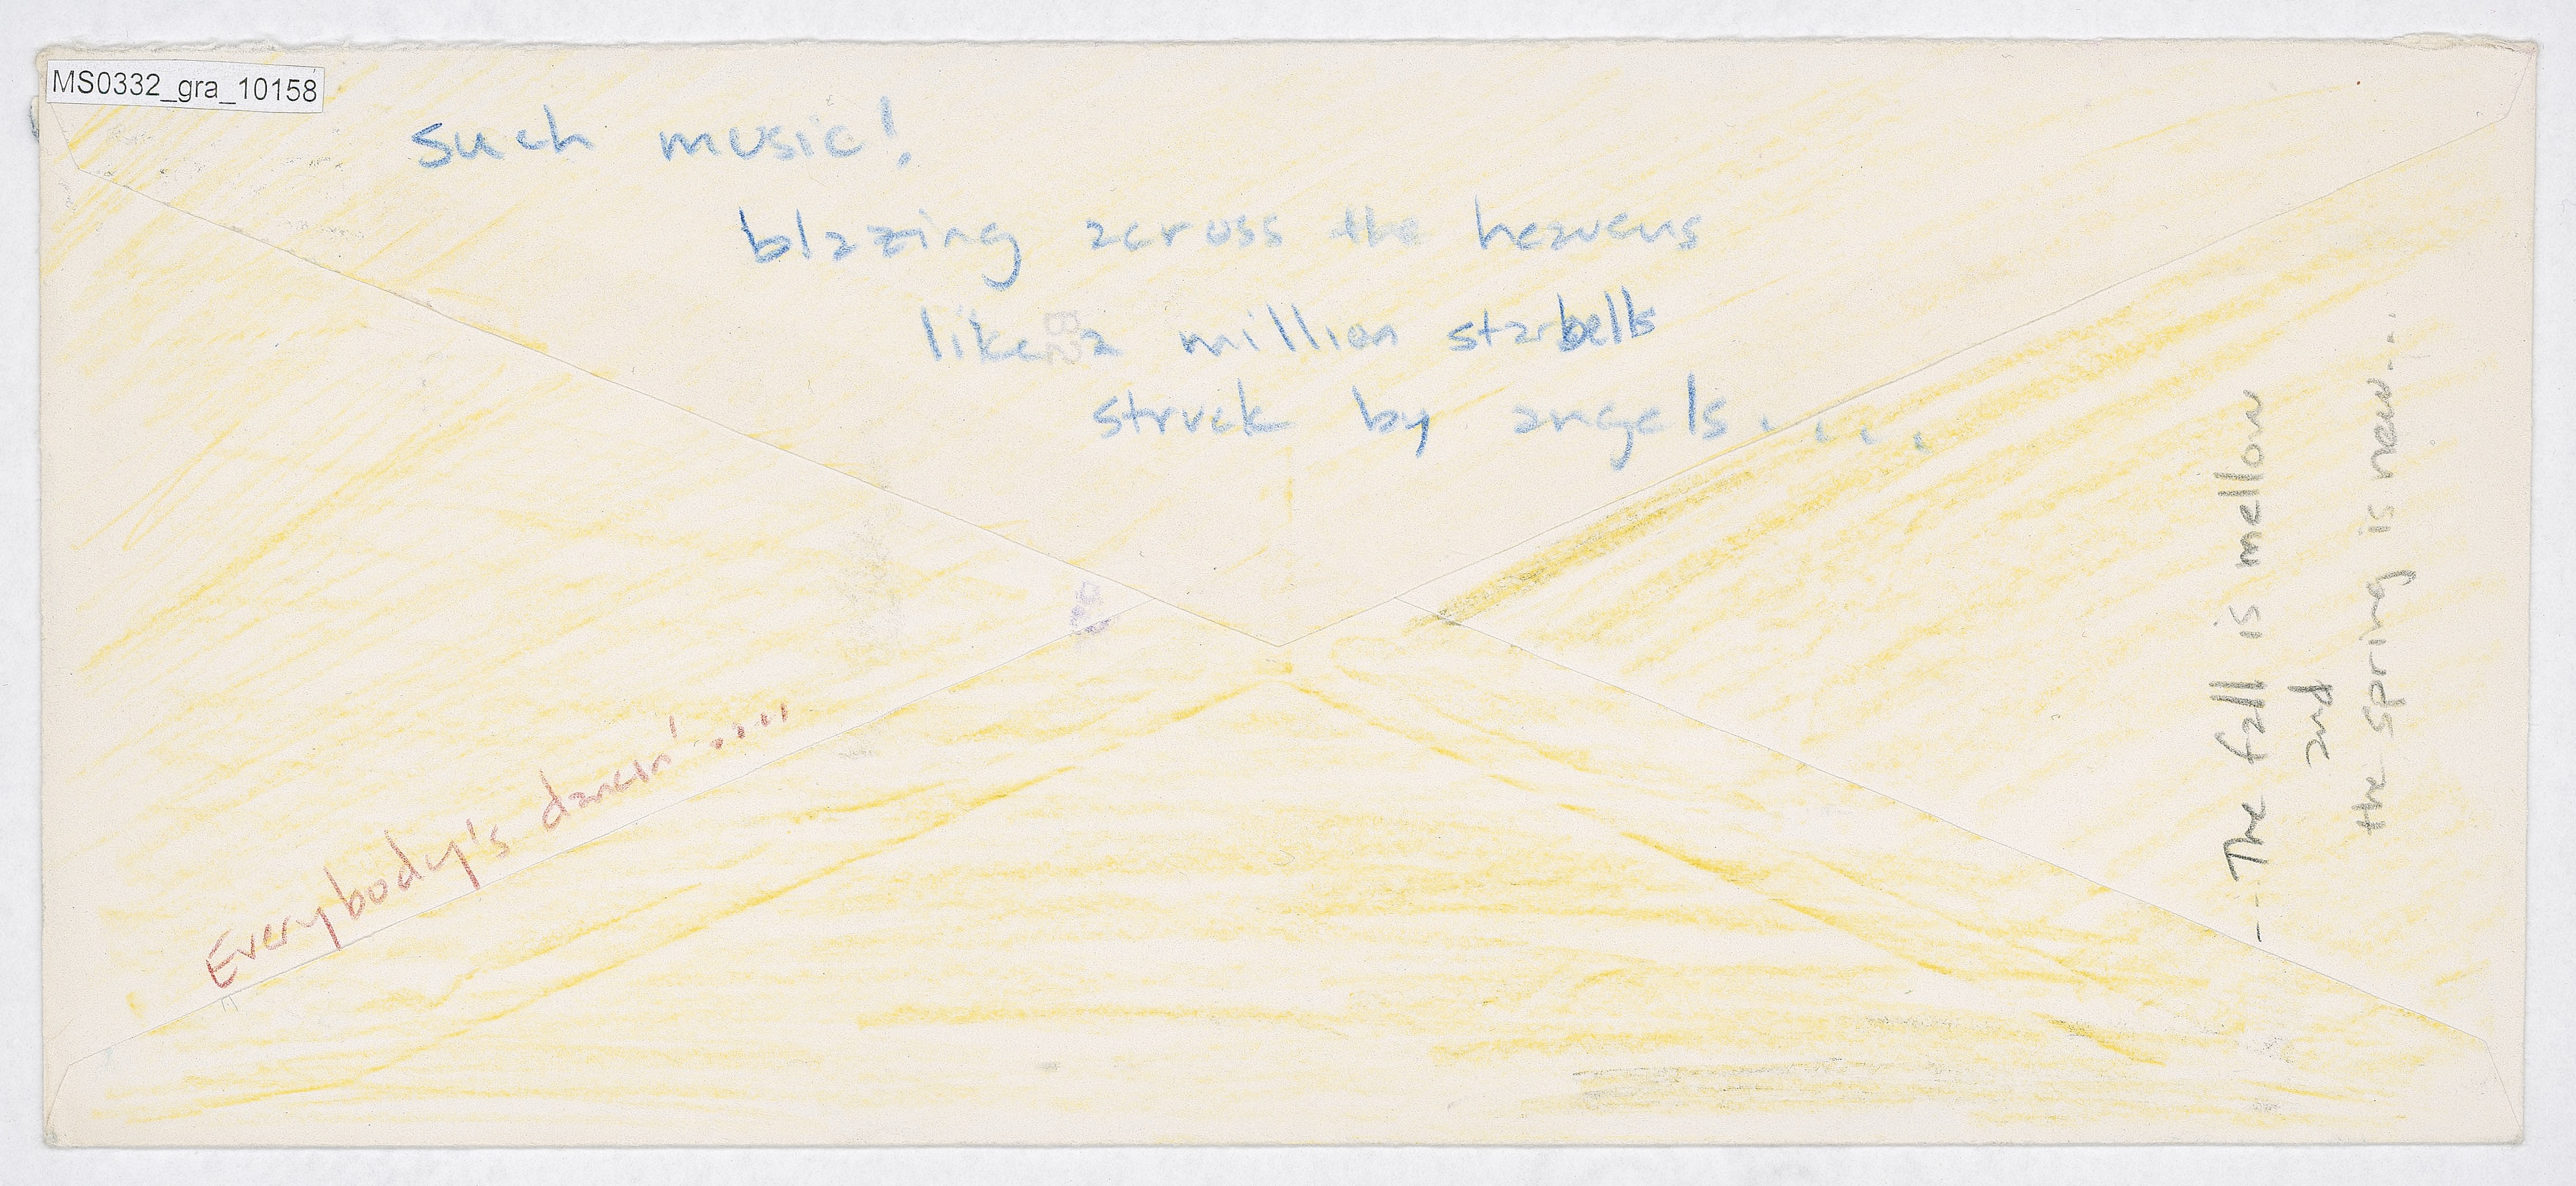 MS0332_gra_10158
such music!
blazing across the heavens
like a million starbells
struck by angels....
Everybody's dancin'....
---The fall is mellow
and
the spring is near...